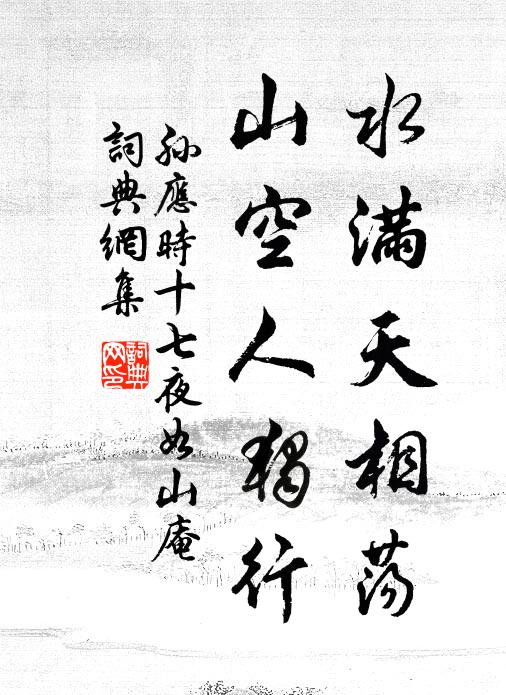 水滿天相蕩
山空人獨行
孫應時十七夜如山庵
詞典網集
詞典
網印